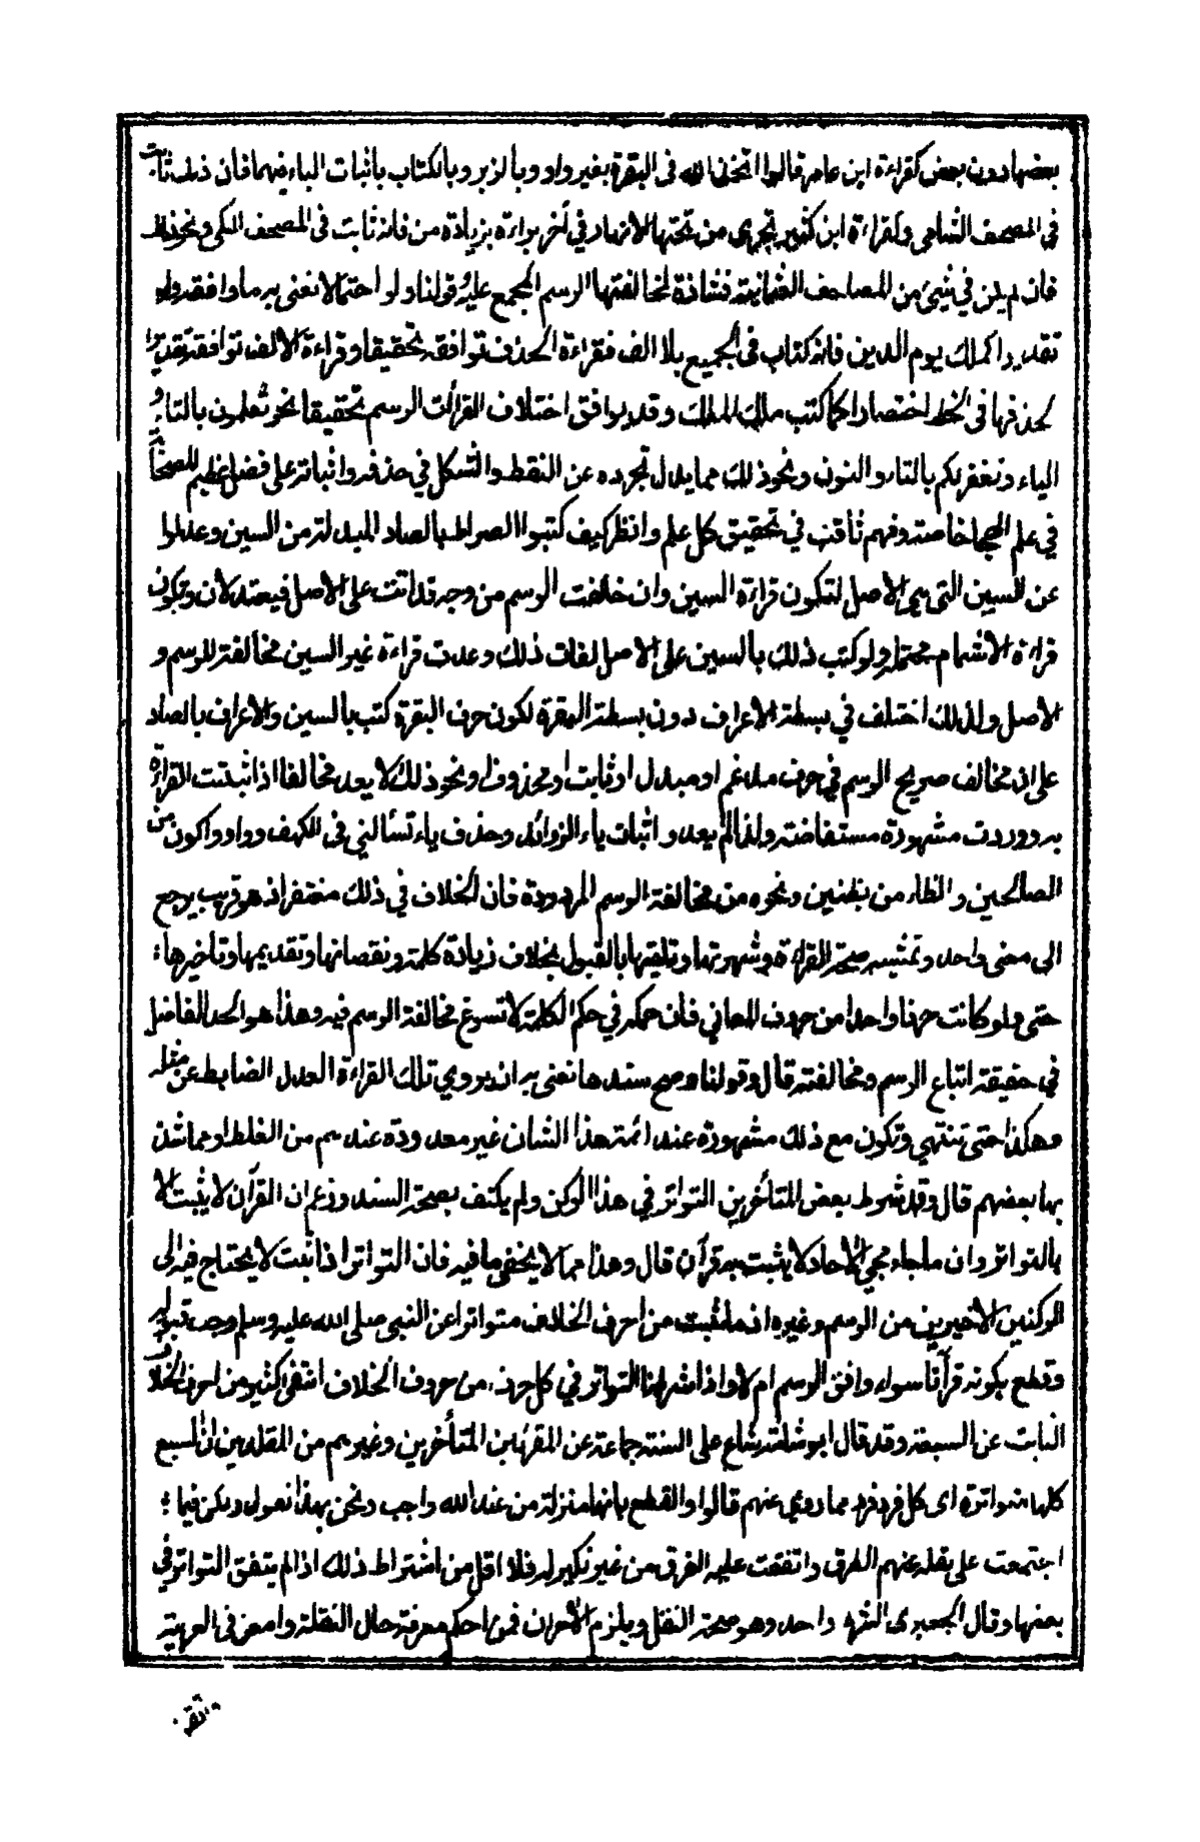 بعضها دون بعض كقراءة ابن عامر قالوا اتخذ الله فى البقرة بغير واو وبالزبر وبالكتاب باثبات الباء فيهما فان ذلك ثابت
في المصحف الشامى وكقراءة ابن كثير تجرى من تحتها الانهار في آخر براءة بزيادة من فانه ثابت فى المصحف المكى ونحو ذلك
فان لم يكن في شيئ من المصاحف العثمانية فشاذة لمخالفتها الرسم المجمع عليه وقولنا ولو احتمالا نعنى به ما وافقه ولو
تقديرا كملك يوم الدين فانه كتاب فى الجميع بلا الف فقراءة الحذف توافقه تحقيقا وقراءة الالف توافقه تقديرا
لحذفها فى الخط اختصارا كما كتب ملك الملك وقد يوافق اختلاف القراآت الرسم تحقيقا نحو تعلمون بالتاء و
الياء ونغفر لكم بالتاء والنون ونحو ذلك مما يدل تجرده عن النقط والشكل في حذفه واثباته على فضل عظيم للصحابة
في علم الهجاء خاصة وفهم ثاقب في تحقيق كل علم وانظر كيف كتبوا الصراط بالصاد المبدلة من السين وعدلوا
عن السين التى هى الاصل لتكون قراءة السين وان خالفت الرسم من وجه قد اتت على الاصل فيعتدلان وتكون
قراءة الاشمام محتملة ولو كتب ذلك بالسين على الاصل لفات ذلك وعدت قراءة غير السين مخالفة للرسم و
الاصل ولذلك اختلف في بسطة الاعراف دون بسطة البقرة لكون حرف البقرة كتب بالسين والاعراف بالصاد
على ان مخالف صريح الرسم في حرف مدغم او مبدل او ثابت او محذوف او نحو ذلك لا يعد مخالفا اذا ثبتت القراءة
به ووردت مشهورة مستفاضة ولذا لم يعدوا اثبات ياء الزوائد وحذف ياء تسألني فى الكهف وواو واكون من
الصالحين والظاء من بظنين ونحوه من مخالفة الرسم المردودة فان الخلاف في ذلك مغتفر اذ هو قريب يرجع
الى معنى واحد وتمشيه صحة القراءة وشهرتها وتلقيها بالقبول بخلاف زيادة كلمة ونقصانها وتقديمها وتاخيرها
حتى ولو كانت حرفا واحدا من حروف المعاني فان حكمه في حكم الكلمة لا تسوغ مخالفة الرسم فيه وهذا هو الحد الفاصل
في حقيقة اتباع الرسم ومخالفته قال وقولنا وصح سندها نعنى به ان يروي تلك القراءة العدل الضابط عن مثله
وهكذا حتى تنتهي وتكون مع ذلك مشهورة عند ائمة هذا الشان غير معدودة عندهم من الغلط او مما شذ
بها بعضهم قال وقد شرط بعض المتأخرين التواتر في هذا الركن ولم يكتف بصحة السند وزعم ان القرآن لا يثبت الا
بالتواتر وان ما جاء مجيء الآحاد لا يثبت به قرآن قال وهذا مما لا يخفى ما فيه فان التواتر اذا ثبت لا يحتاج فيه الى
الركنين الاخيرين من الرسم وغيره اذ ما ثبت من احرف الخلاف متواترا عن النبى صلى الله عليه وسلم وجب قبوله
وقطع بكونه قرآنا سواء وافق الرسم ام لا واذا شرطنا التواتر في كل حرف من حروف الخلاف انتفى كثير من احرف الخلاف
الثابت عن السبعة وقد قال ابو شامة شاع على السنة جماعة عن المقرئين المتأخرين وغيرهم من المقلدين ان السبع
كلها متواترة اى كل فرد فرد مما روي عنهم قالوا والقطع بانها منزلة من عند الله واجب ونحن بهذا نعول ولكن فيما
اجتمعت على نقله عنهم الطرق واتفقت عليه الفرق من غير نكير له فلا اقل من اشتراط ذلك اذا لم يتفق التواتر في
بعضها وقال الجعبرى الشرط واحد وهو صحة النقل ويلزم الآخران فمن احكم معرفة حال النقلة وامعن فى العربية
واتقن